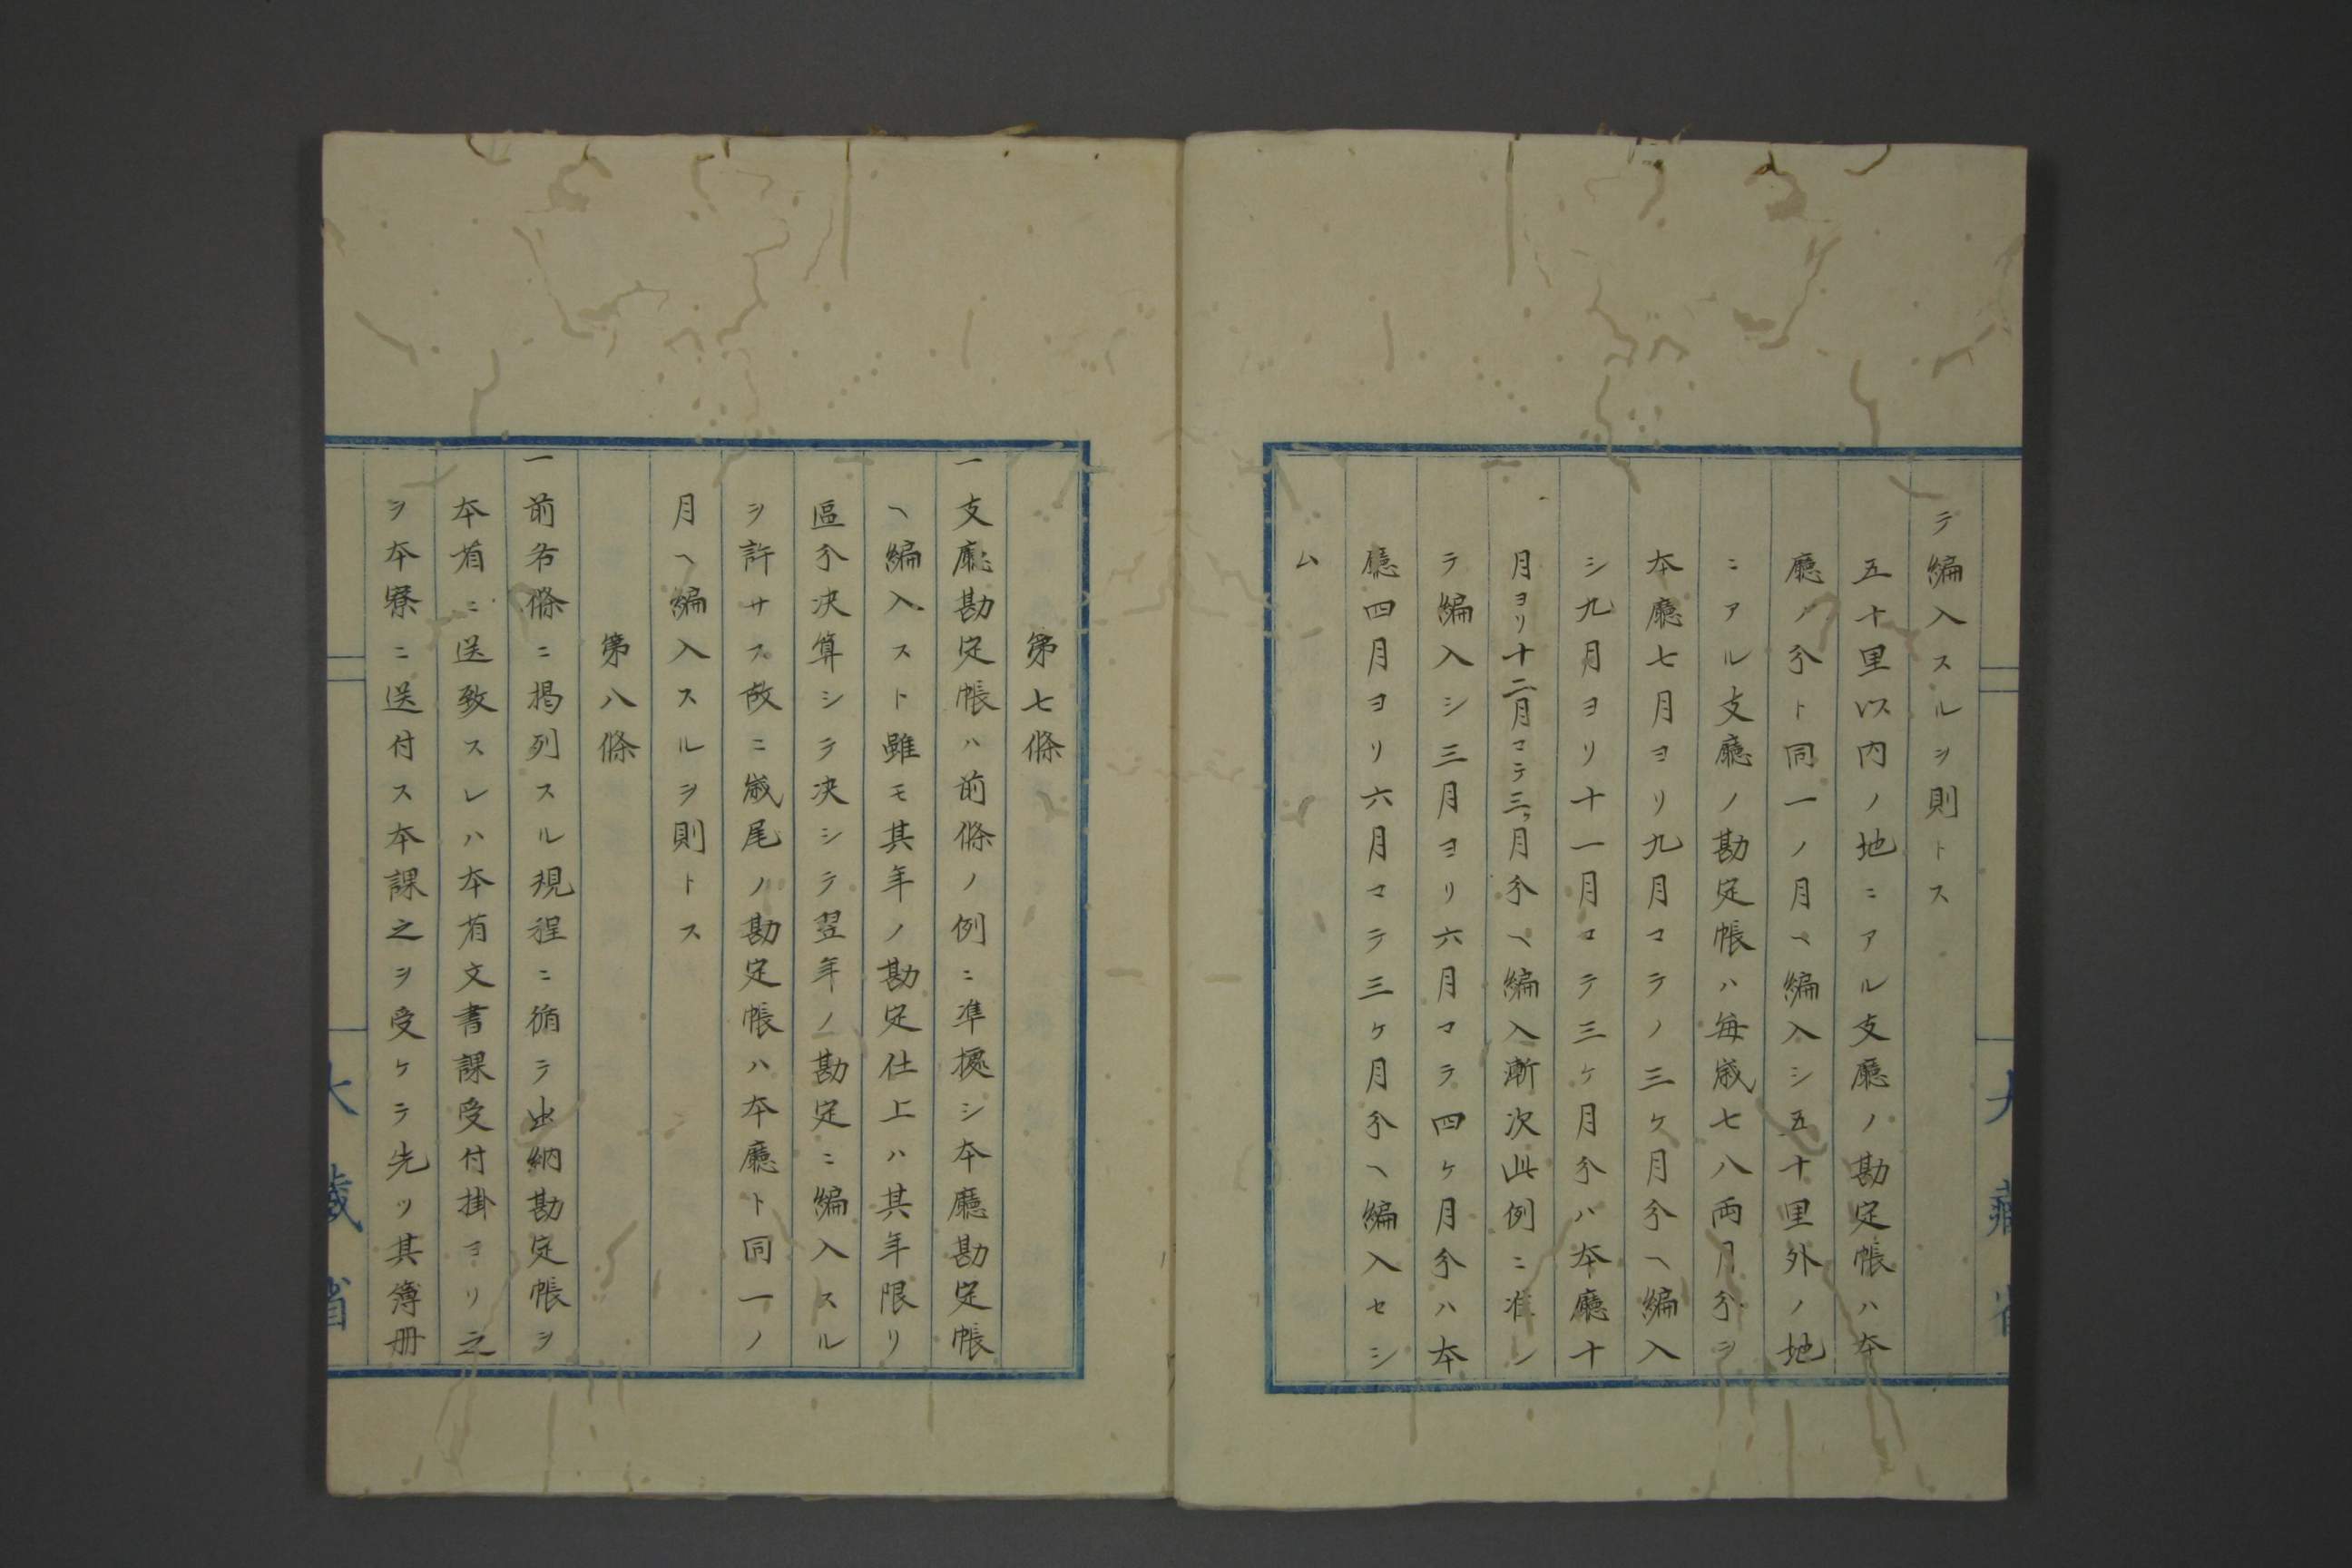 テ編入スルヲ則トス
五十里以内ノ地ニアル支廳ノ勘定帳ハ本
廳ノ分ト同一ノ月ヘ編入シ五十里外ノ地
ニアル支廳ノ勘定帳ハ毎歳七八両月分ヲ
本廳七月ヨリ九月マテノ三ケ月分ヘ編入
シ九月ヨリ十一月マテ三ケ月分ハ本廳十
月ヨリ十二月マテ三ケ月分ヘ編入漸次此例ニ准シ
テ編入シ三月ヨリ六月マテ四ケ月分ハ本
廳四月ヨリ六月マテ三ケ月分ヘ編入セシ
ム
第七條
一支廳勘定帳ハ前條ノ例ニ準據シ本廳勘定帳
ヘ編入スト雖モ其年ノ勘定仕上ハ其年限リ
區分决算シテ决シテ翌年ノ勘定ニ編入スル
ヲ許サス故ニ歳尾ノ勘定帳ハ本廳ト同一ノ
月ヘ編入スルヲ則トス
第八條
一前各條ニ掲列スル規程ニ循テ出納勘定帳ヲ
本省ニ送致スレハ本省文書課受付掛ヨリ之
ヲ本寮ニ送付ス本課之ヲ受ケテ先ツ其簿册
大藏省